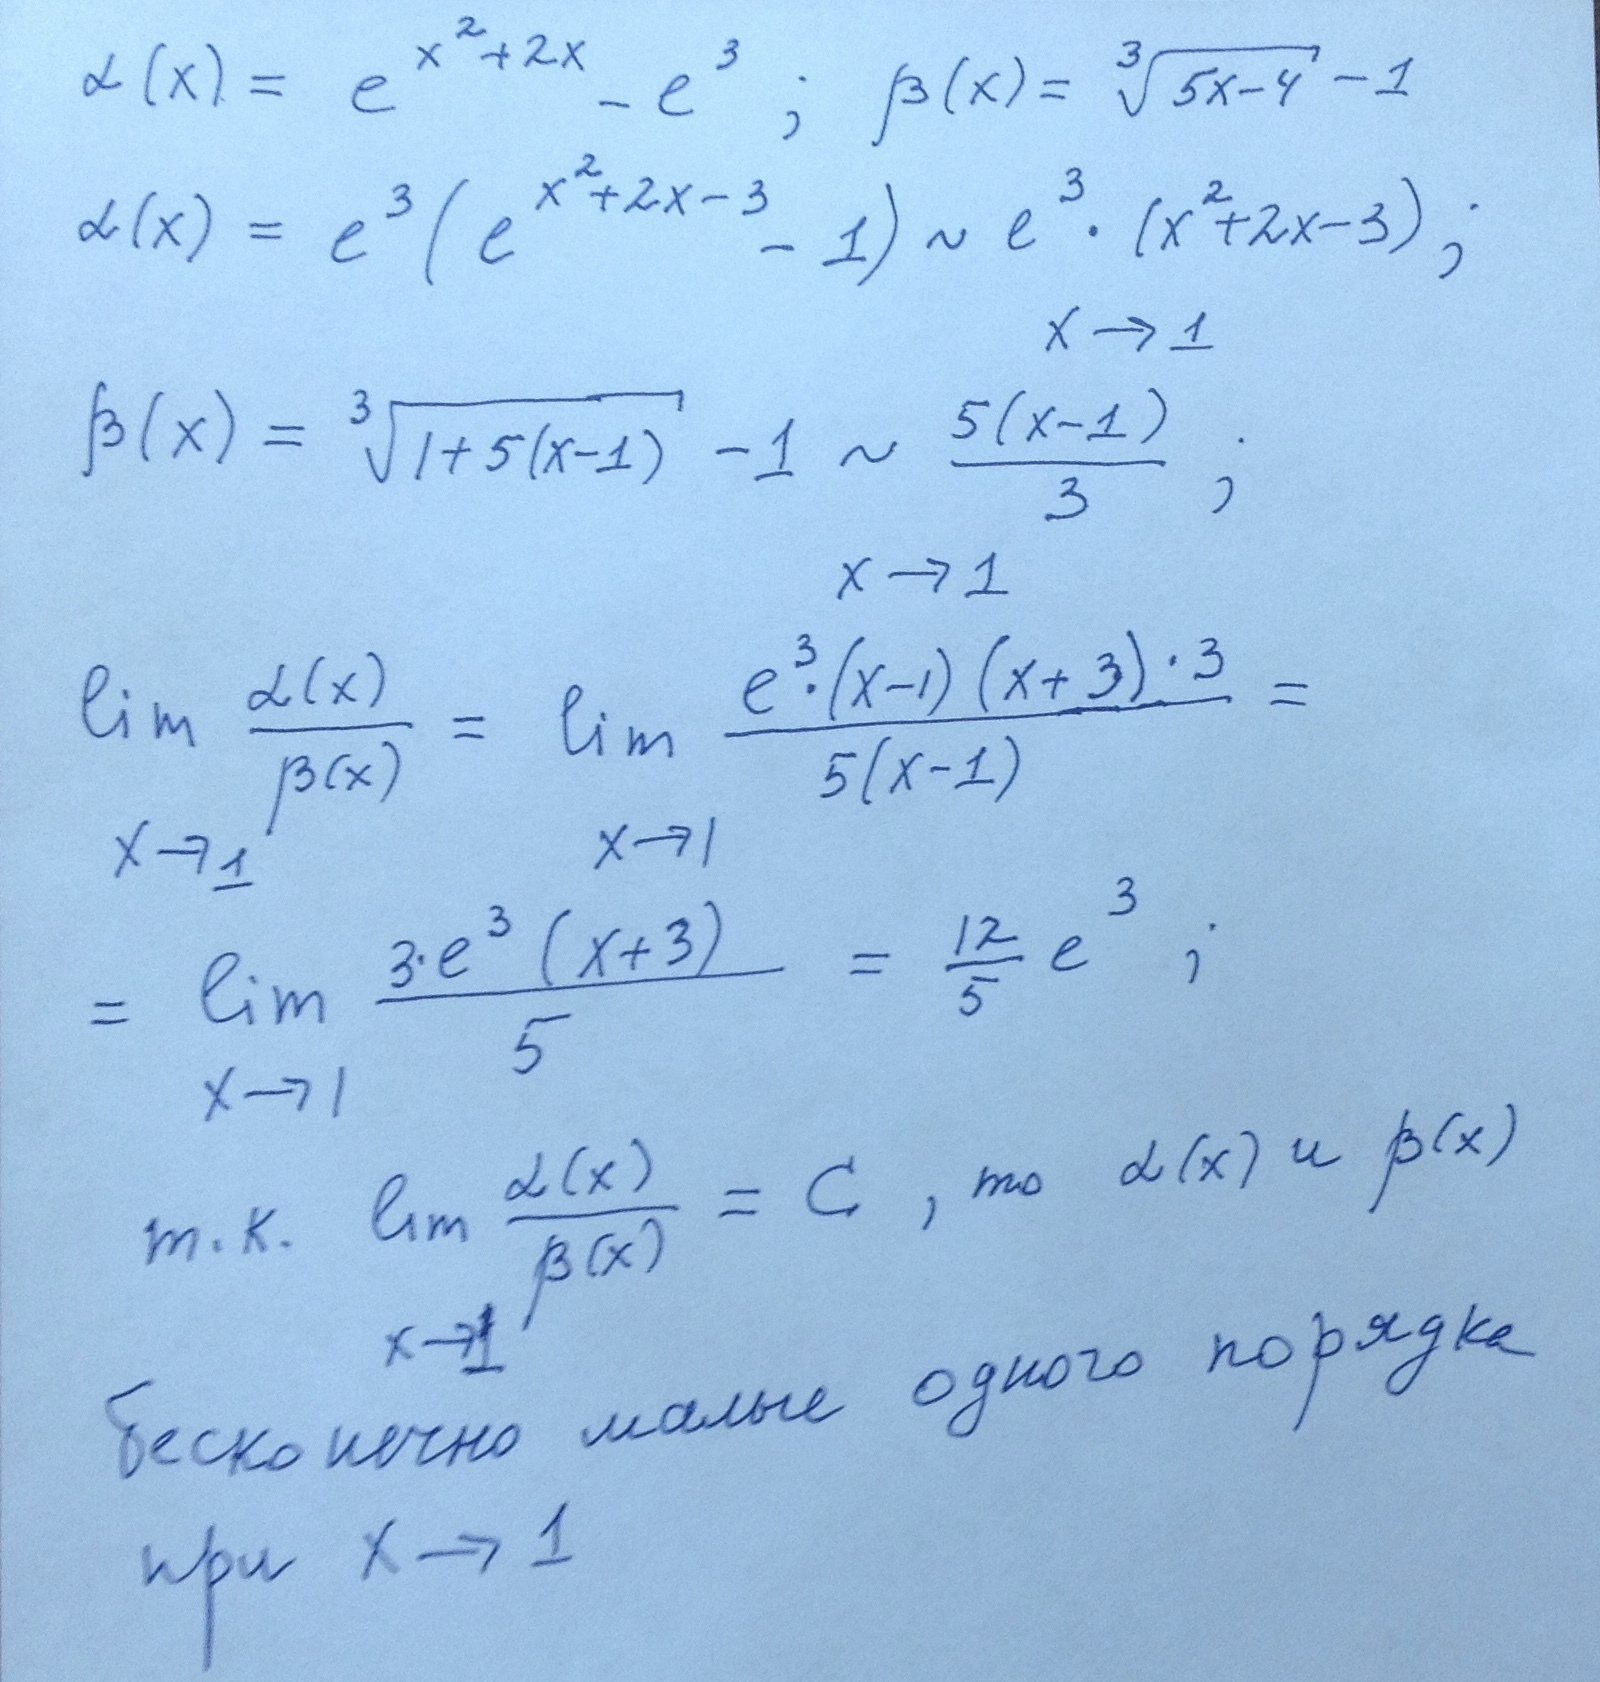 α(x) = e^(x²+2x) - e³ ; β(x) = ∛(5x-4) - 1
α(x) = e³(e^(x²+2x-3) - 1) ~ e³·(x²+2x-3) ;
x→1
β(x) = ∛(1+5(x-1)) - 1 ~ 5(x-1)/3 ;
x→1
lim α(x)/β(x) = lim e³·(x-1)(x+3)·3/5(x-1) =
x→1 x→1
= lim 3·e³(x+3)/5 = 12/5 e³ ;
x→1
т.к. lim α(x)/β(x) = C, то α(x) и β(x)
x→1
бесконечно малые одного порядка
при x→1